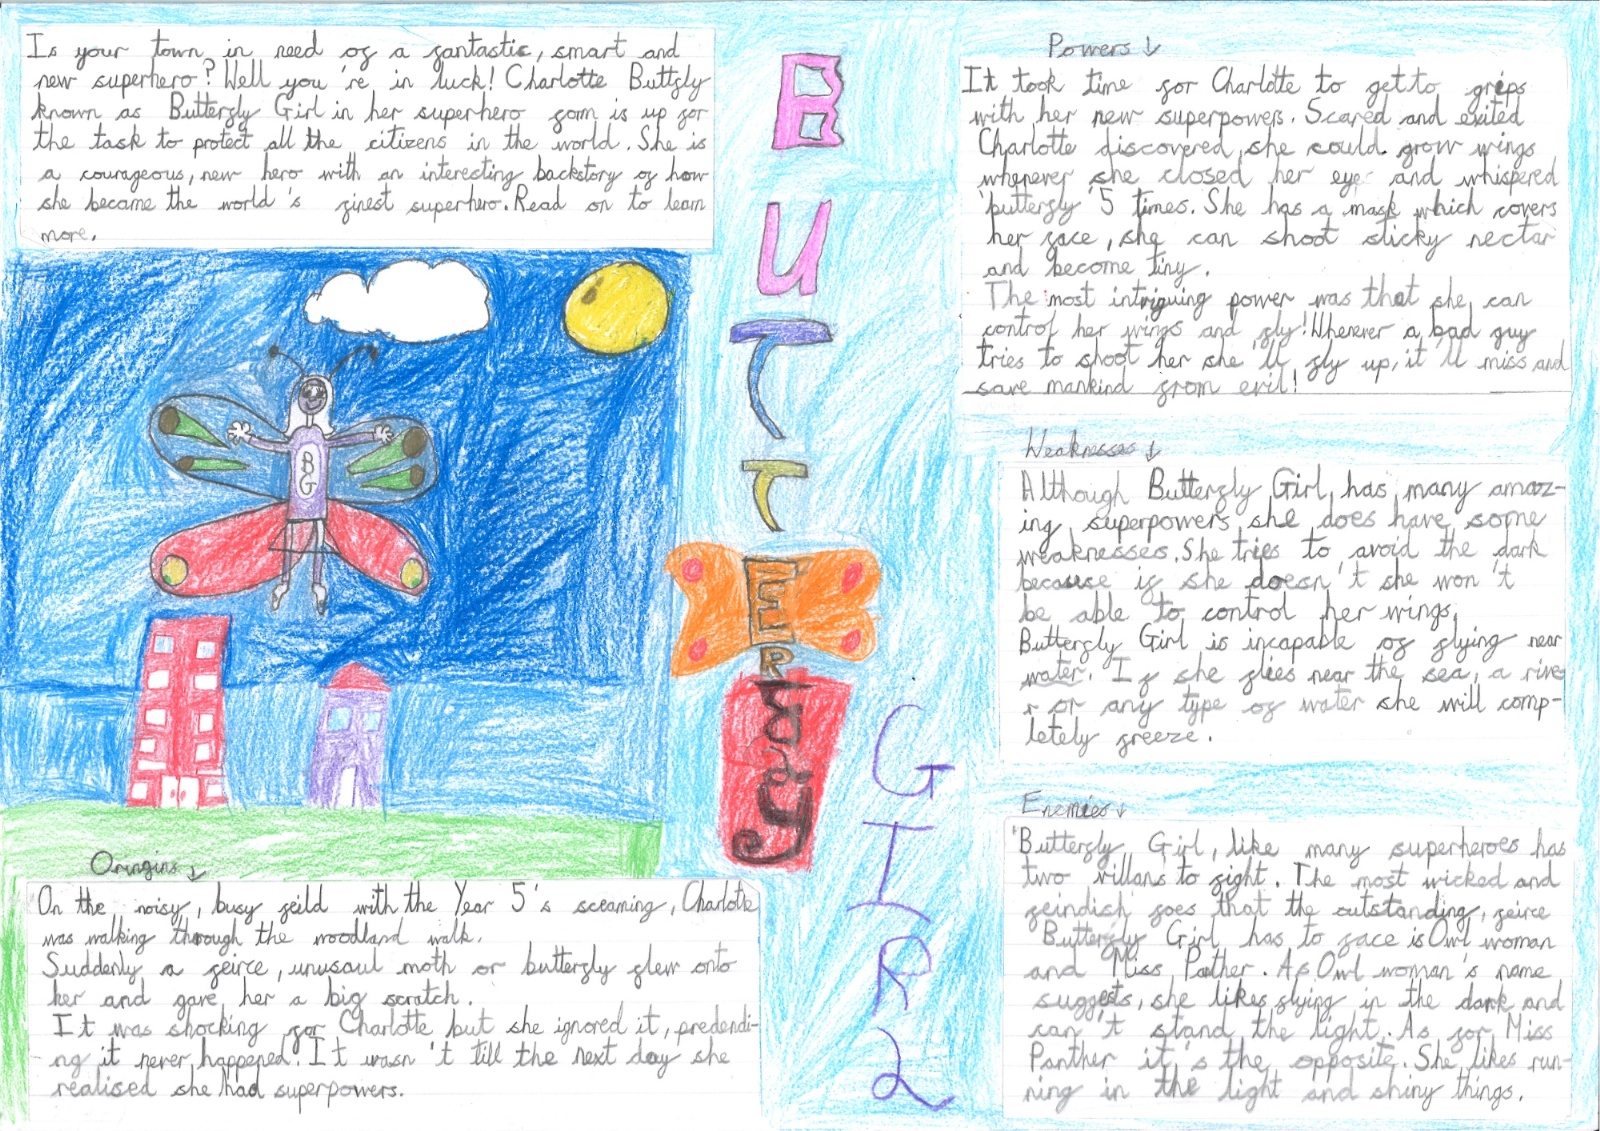 Is your town in need of a fantastic, smart and
new superhero? Well you're in luck! Charlotte Buttfly
known as Butterfly Girl in her superhero form is up for
the task to protect all the citizens in the world. She is
a courageous, new hero with an interesting backstory of how
she became the world's finest superhero. Read on to learn
more.
BG
Oringins ↓
On the noisy, busy feild with the Year 5's sceaming, Charlotte
was walking through the woodland walk.
Suddenly a feirce, unusaul moth or butterfly flew onto
her and gave her a big scratch.
It was shocking for Charlotte but she ignored it, predendi-
ng it never happened. It wasn't till the next day she
realised she had superpowers.
BUTTERFLY
GIRL
Powers ↓
It took time for Charlotte to get to grips
with her new superpowers. Scared and exited
Charlotte discovered she could grow wings
whenever she closed her eye and whispered
'butterfly' 5 times. She has a mask which covers
her face, she can shoot sticky nectar
and become tiny.
The most intriguing power was that she can
control her wings and fly! Whenever a bad guy
tries to shoot her she'll fly up, it'll miss and
save mankind from evil!
Weaknesses ↓
Although Butterfly Girl has many amaz-
ing superpowers she does have some
weaknesses. She tries to avoid the dark
because if she doesn't she won't
be able to control her wings.
Butterfly Girl is incapable of flying near
water. If she flies near the sea, a rive-
r or any type of water she will comp-
letely freeze.
Enemies ↓
Butterfly Girl, like many superheroes has
two villans to fight. The most wicked and
feindish foes that the outstanding, feirce
Butterfly Girl has to face is Owl woman
and Miss Panther. As Owl woman's name
suggests, she likes flying in the dark and
can't stand the light. As for Miss
Panther it's the opposite. She likes run-
ning in the light and shiny things.